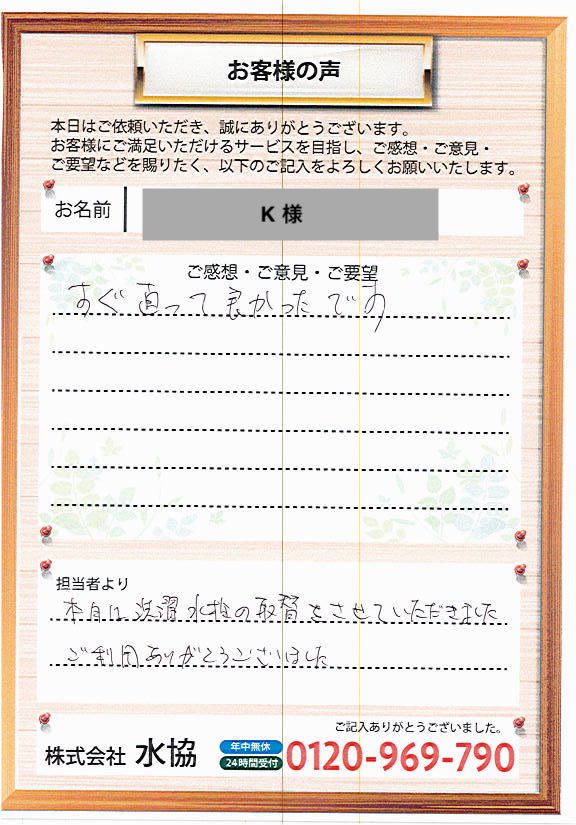 お客様の声
本日はご依頼いただき、誠にありがとうございます。
お客様にご満足いただけるサービスを目指し、ご感想・ご意見・
ご要望などを賜りたく、以下のご記入をよろしくお願いいたします。
お名前 K 様
ご感想・ご意見・ご要望
すぐ直って良かったです
担当者より
本日は洗濯水栓の取替をさせていただきました
ご利用ありがとうございました
ご記入ありがとうございました。
株式会社 水協 年中無休 24時間受付 0120-969-790